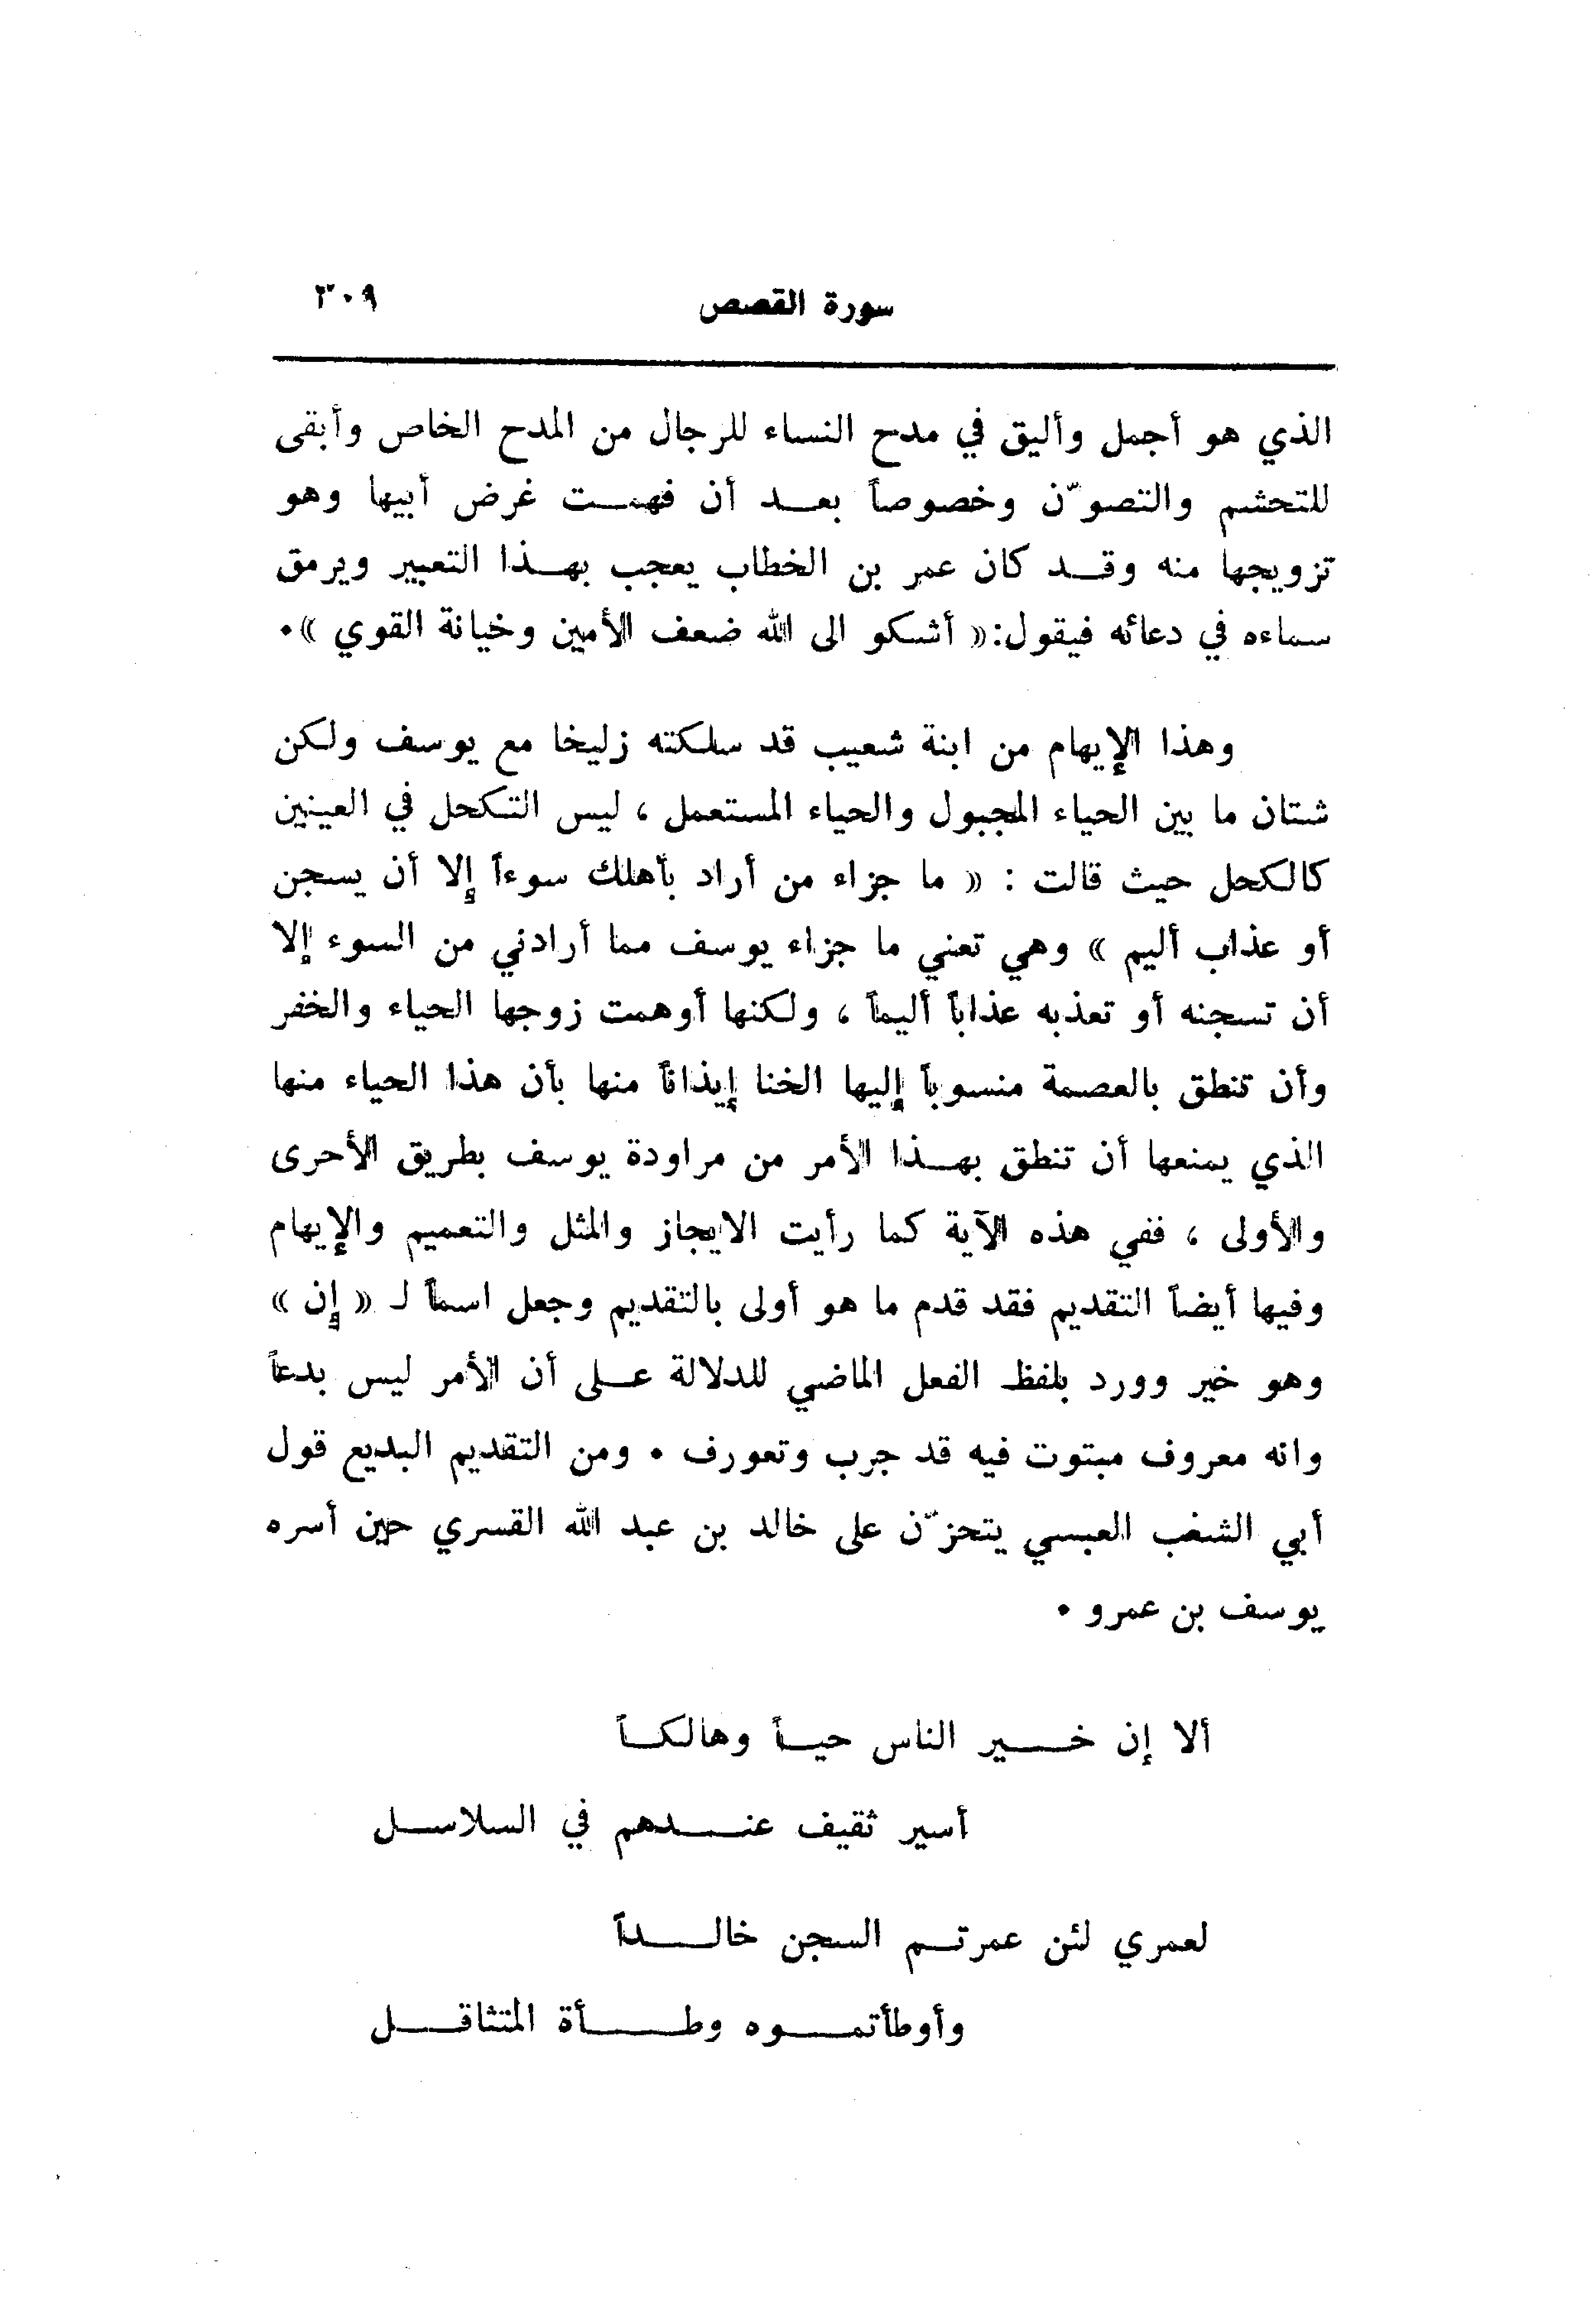 سورة القصص ٣٠٩
الذي هو أجمل وأليق في مدح النساء للرجال من المدح الخاص وأبقى
للتحشم والتصوّن وخصوصاً بعد أن فهمت غرض أبيها وهو
تزويجها منه وقد كان عمر بن الخطاب يعجب بهذا التعبير ويرمق
سماءه في دعائه فيقول:« أشكو الى الله ضعف الأمين وخيانة القوي ».
وهذا الإيهام من ابنة شعيب قد سلكته زليخا مع يوسف ولكن
شتان ما بين الحياء المجبول والحياء المستعمل ، ليس التكحل في العينين
كالكحل حيث قالت : « ما جزاء من أراد بأهلك سوءاً إلا أن يسجن
أو عذاب أليم » وهي تعني ما جزاء يوسف مما أرادني من السوء إلا
أن تسجنه أو تعذبه عذاباً أليماً ، ولكنها أوهمت زوجها الحياء والخفر
وأن تنطق بالعصمة منسوباً إليها الخنا إيذاناً منها بأن هذا الحياء منها
الذي يمنعها أن تنطق بهذا الأمر من مراودة يوسف بطريق الأحرى
والأولى ، ففي هذه الآية كما رأيت الايجاز والمثل والتعميم والإيهام
وفيها أيضاً التقديم فقد قدم ما هو أولى بالتقديم وجعل اسماً لـ « إن »
وهو خير وورد بلفظ الفعل الماضي للدلالة على أن الأمر ليس بدعاً
وانه معروف مبتوت فيه قد جرب وتعورف . ومن التقديم البديع قول
أبي الشغب العبسي يتحزّن على خالد بن عبد الله القسري حين أسره
يوسف بن عمرو .
ألا إن خير الناس حياً وهالكاً
أسير ثقيف عندهم في السلاسل
لعمري لئن عمرتم السجن خالداً
وأوطأتموه وطأة المتثاقل